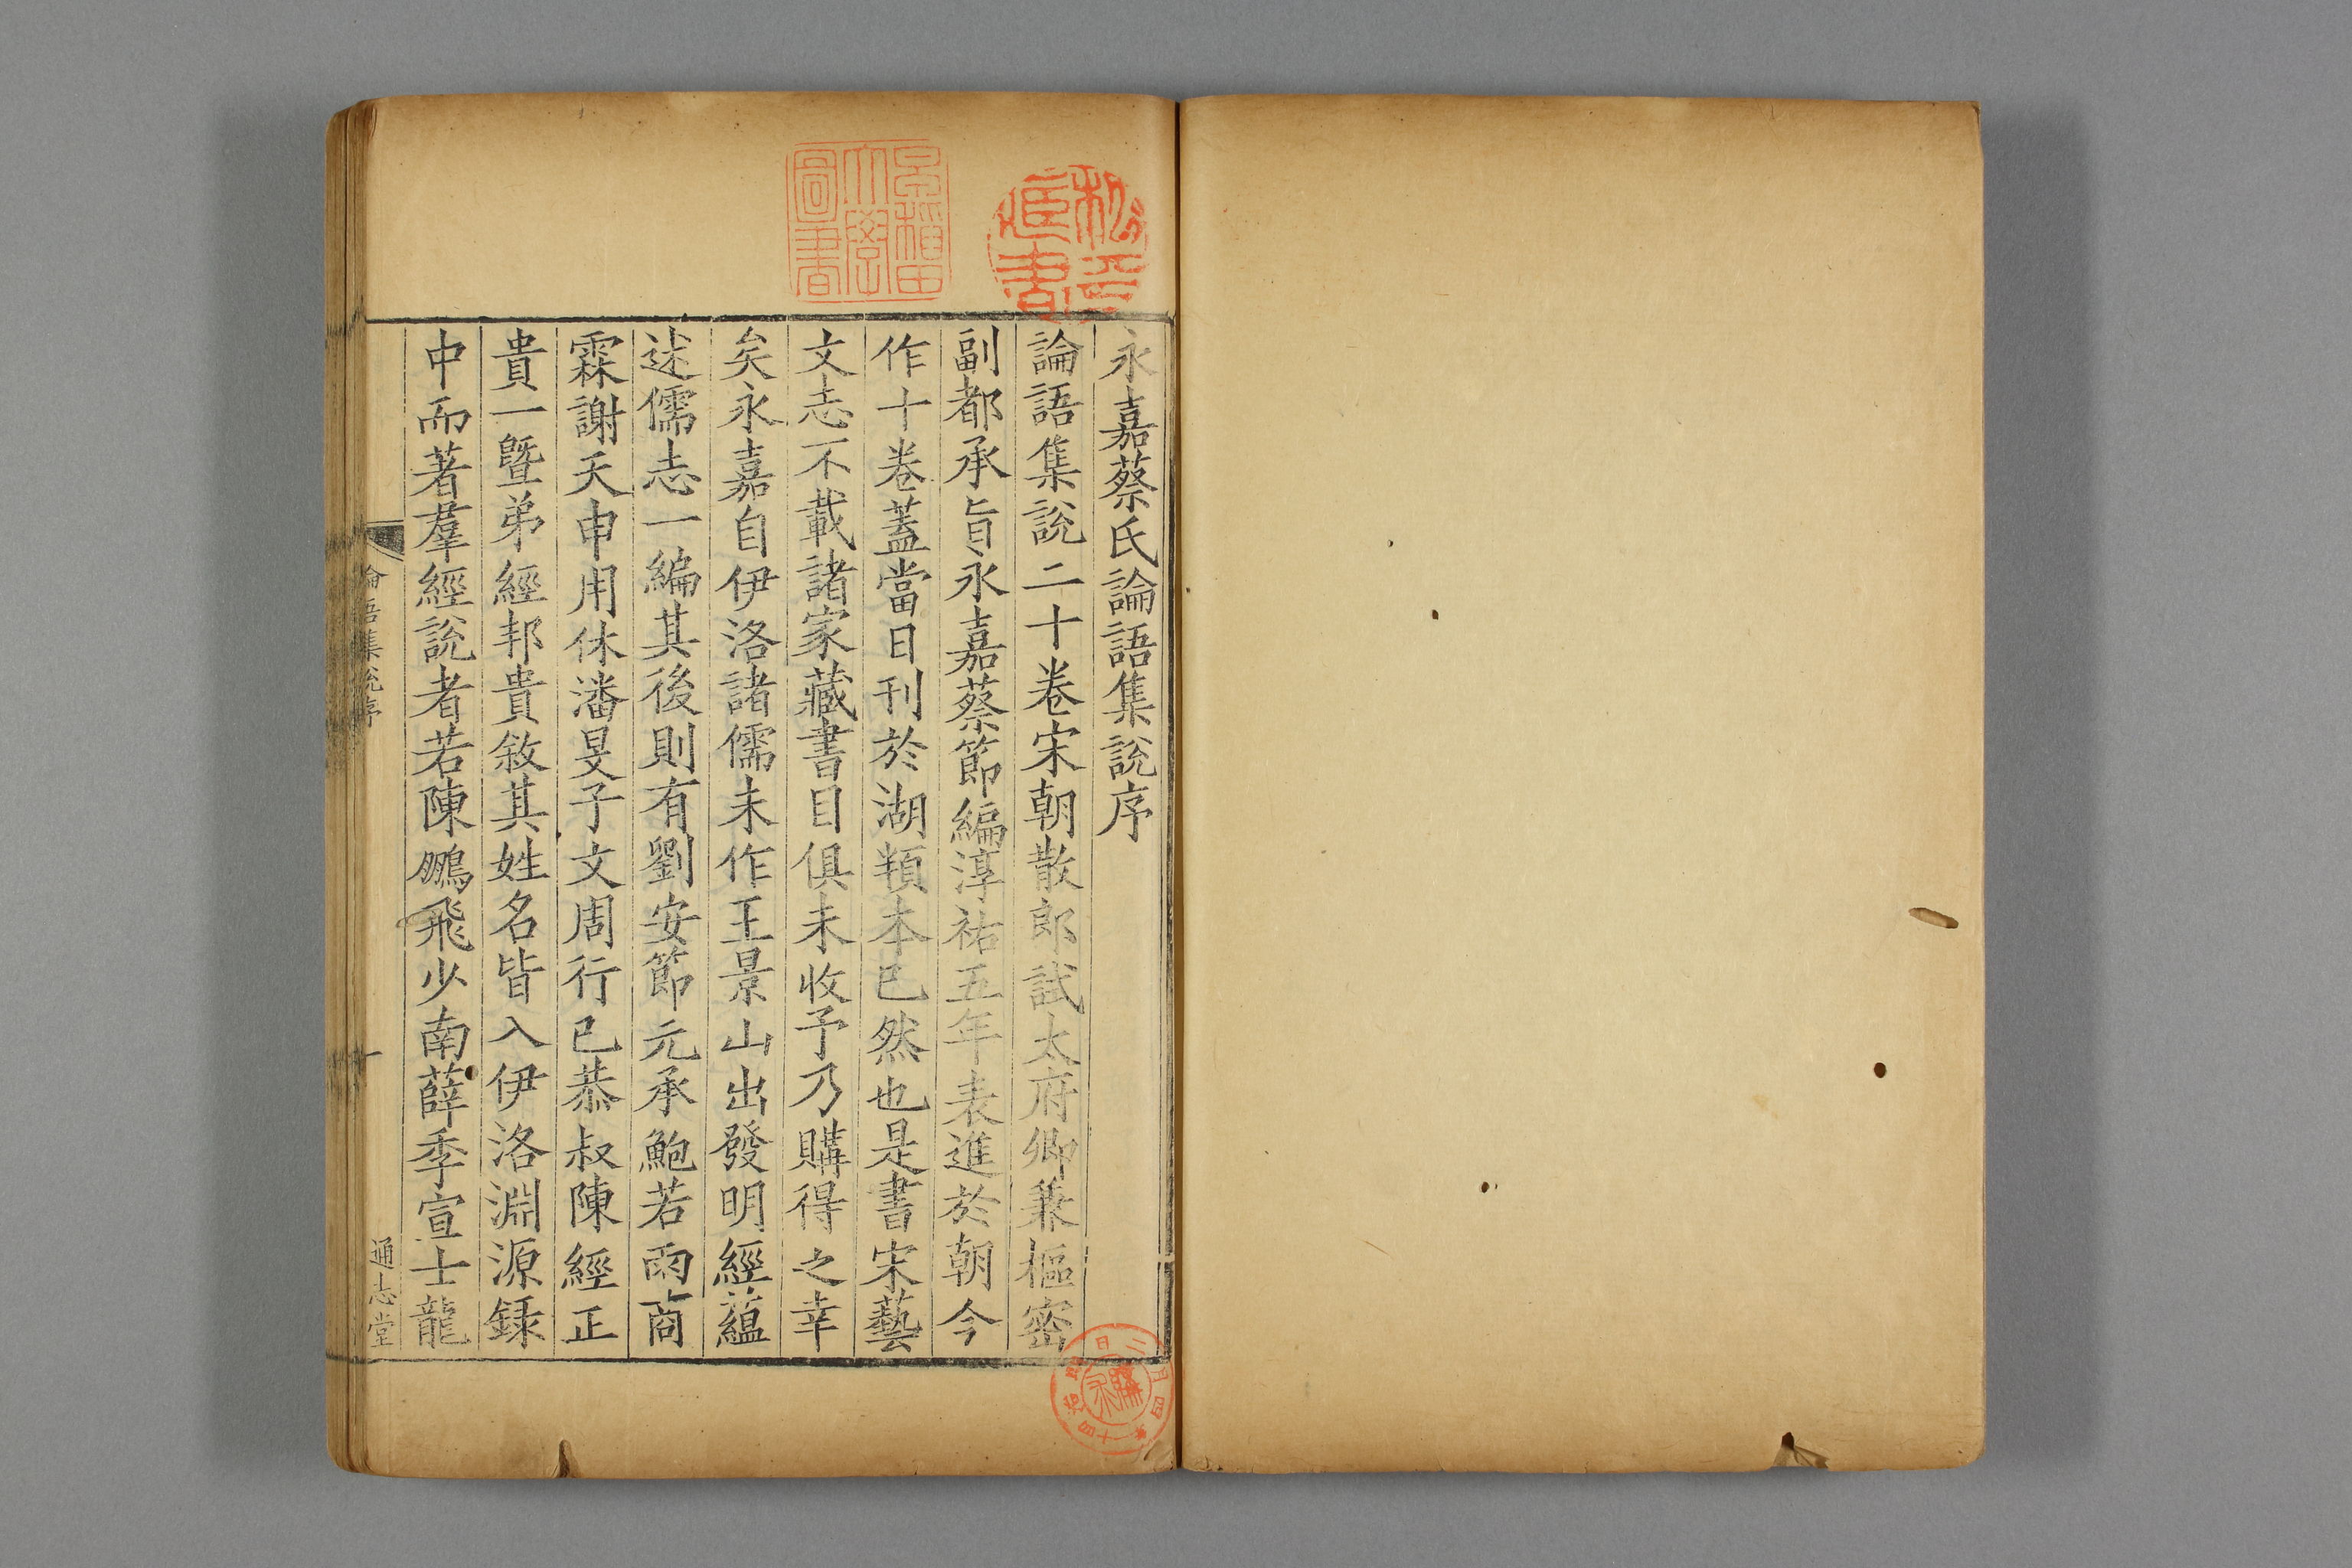 永嘉蔡氏論語集說序
論語集說二十卷宋朝散郎試太府卿兼樞密
副都承旨永嘉蔡節編淳祐五年表進於朝今
作十卷蓋當日刊於湖頖本已然也是書宋藝
文志不載諸家藏書目俱未收予乃購得之幸
矣永嘉自伊洛諸儒未作王景山出發明經蘊
述儒志一編其後則有劉安節元承鮑若雨商
霖謝天申用休潘旻子文周行己恭叔陳經正
貴一暨弟經邦貴敘其姓名皆入伊洛淵源録
中而著羣經說者若陳鵬飛少南薛季宣士龍
論語集說序
一
通志堂
早稻田大學圖書